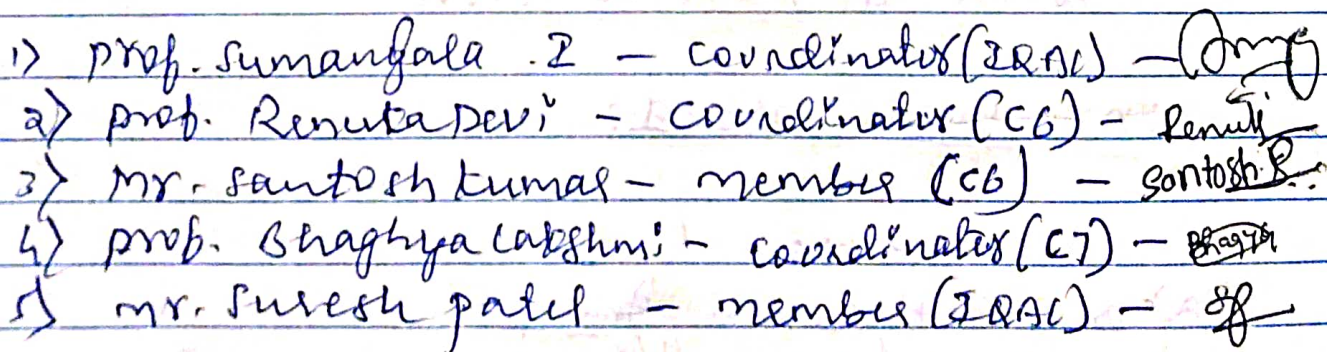 1) Prof. Sumangala .I - Coordinator (IQAC) -
2) Prof. Renuka Devi - Coordinator (C6) - Renuk
3) Mr. Santosh Kumar - Member (C6) - Santosh.R
4) Prof. Bhaghya Lakshmi - Coordinator (C7) - Bhagya
5) Mr. Suresh Patil - Member (IQAC) -